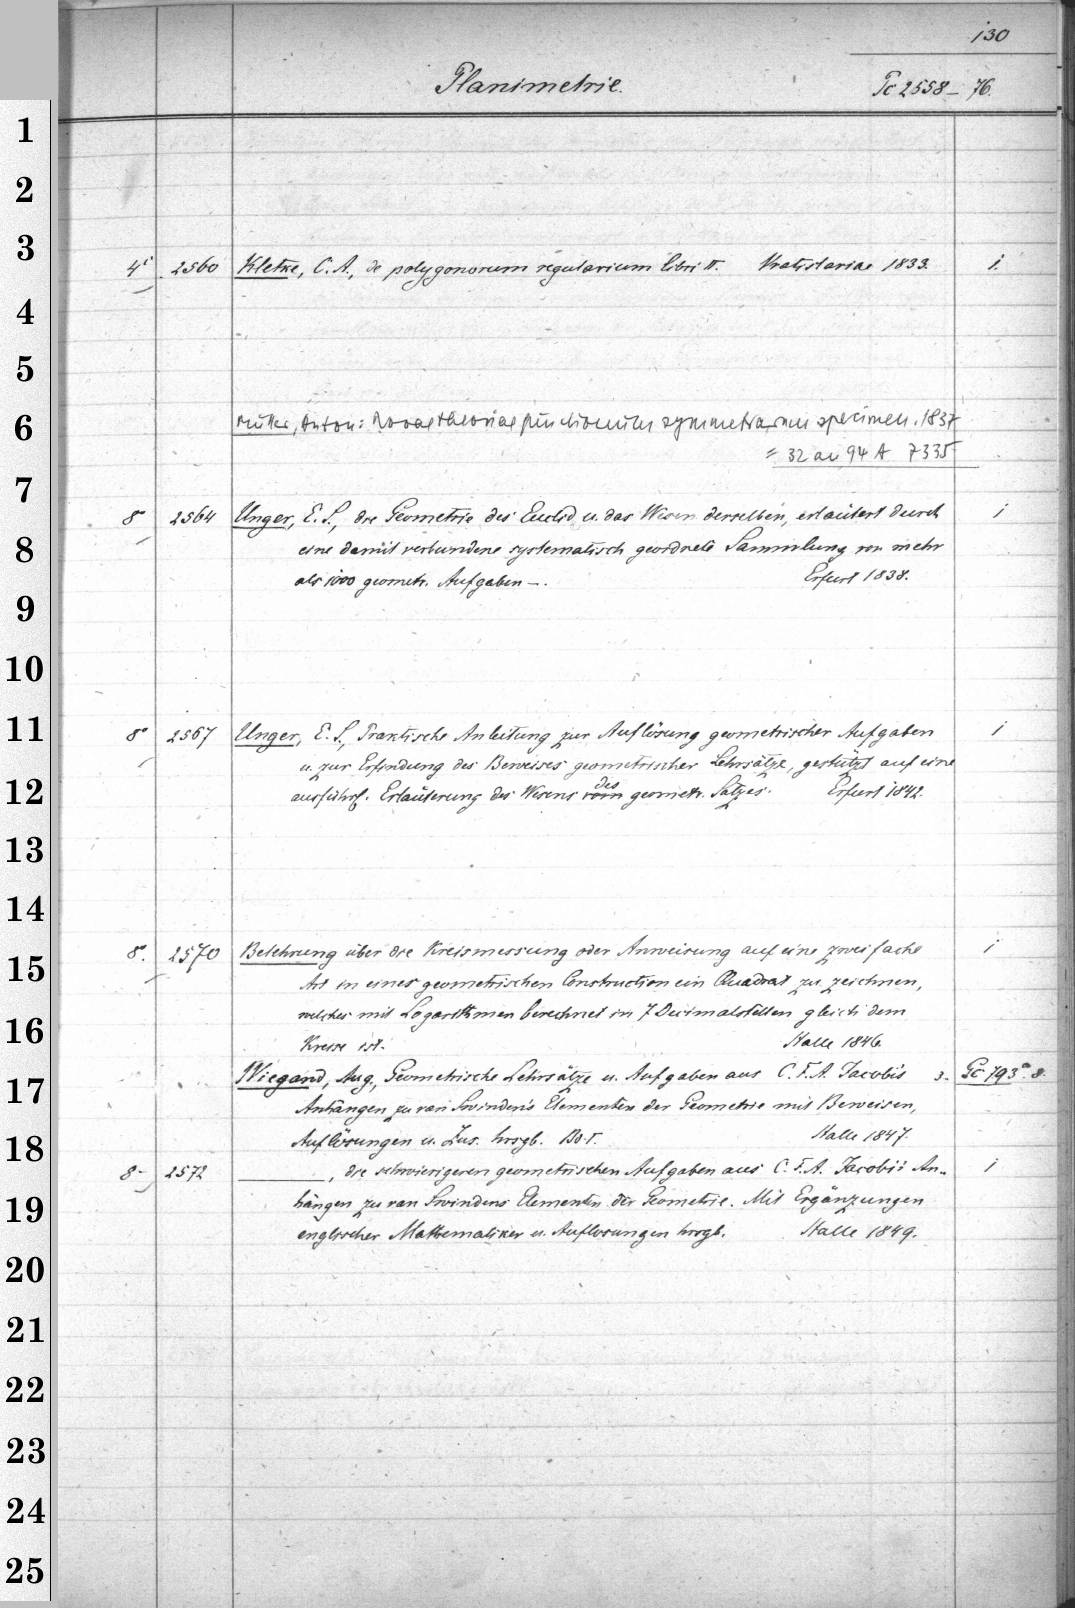 130
Planimetrie.
Pc 2558-76.
1
2
3
4° 2560 Kletke, C. A., de polygonorum regularium libri II. Vratislaviae 1833. 1.
4
5
6 Müller, Anton: Novae theoriae functionum symmetrarum specimen. 1837
= 32 an 94 A 7335
7
8° 2564 Unger, E. S., die Geometrie des Euclid u. das Wesen derselben, erläutert durch 1
8 eine damit verbundene systematisch geordnete Sammlung von mehr
als 1000 geometr. Aufgaben —. Erfurt 1838.
9
10
11 8° 2567 Unger, E. S., Praktische Anleitung zur Auflösung geometrischer Aufgaben 1
u. zur Erfindung des Beweises geometrischer Lehrsätze, gestützt auf eine
12 ausführl. Erläuterung des Wesens vom des geometr. Satzes. Erfurt 1842.
13
14
8°. 2570 Belehrung über die Kreismessung oder Anweisung auf eine zweifache 1
15 Art in eines geometrischen Construction ein Quadrat zu zeichnen,
welches mit Logarithmen berechnet in 7 Decimalstellen gleich dem
16 Kreise ist. Halle 1846.
17 Wiegand, Aug., Geometrische Lehrsätze u. Aufgaben aus C. F. A. Jacobi's 3. Pc 793a. 8.
Anhängen zu van Swinden's Elementen der Geometrie mit Beweisen,
18 Auflösungen u. Zus. hrsgb. Bd. I. Halle 1847.
8° 2572 ———, die schwierigeren geometrischen Aufgaben aus C. F. A. Jacobi's An- 1
19 hängen zu van Swindens Elementen der Geometrie. Mit Ergänzungen
englischer Mathematiker u. Auflösungen hrsgb. Halle 1849.
20
21
22
23
24
25